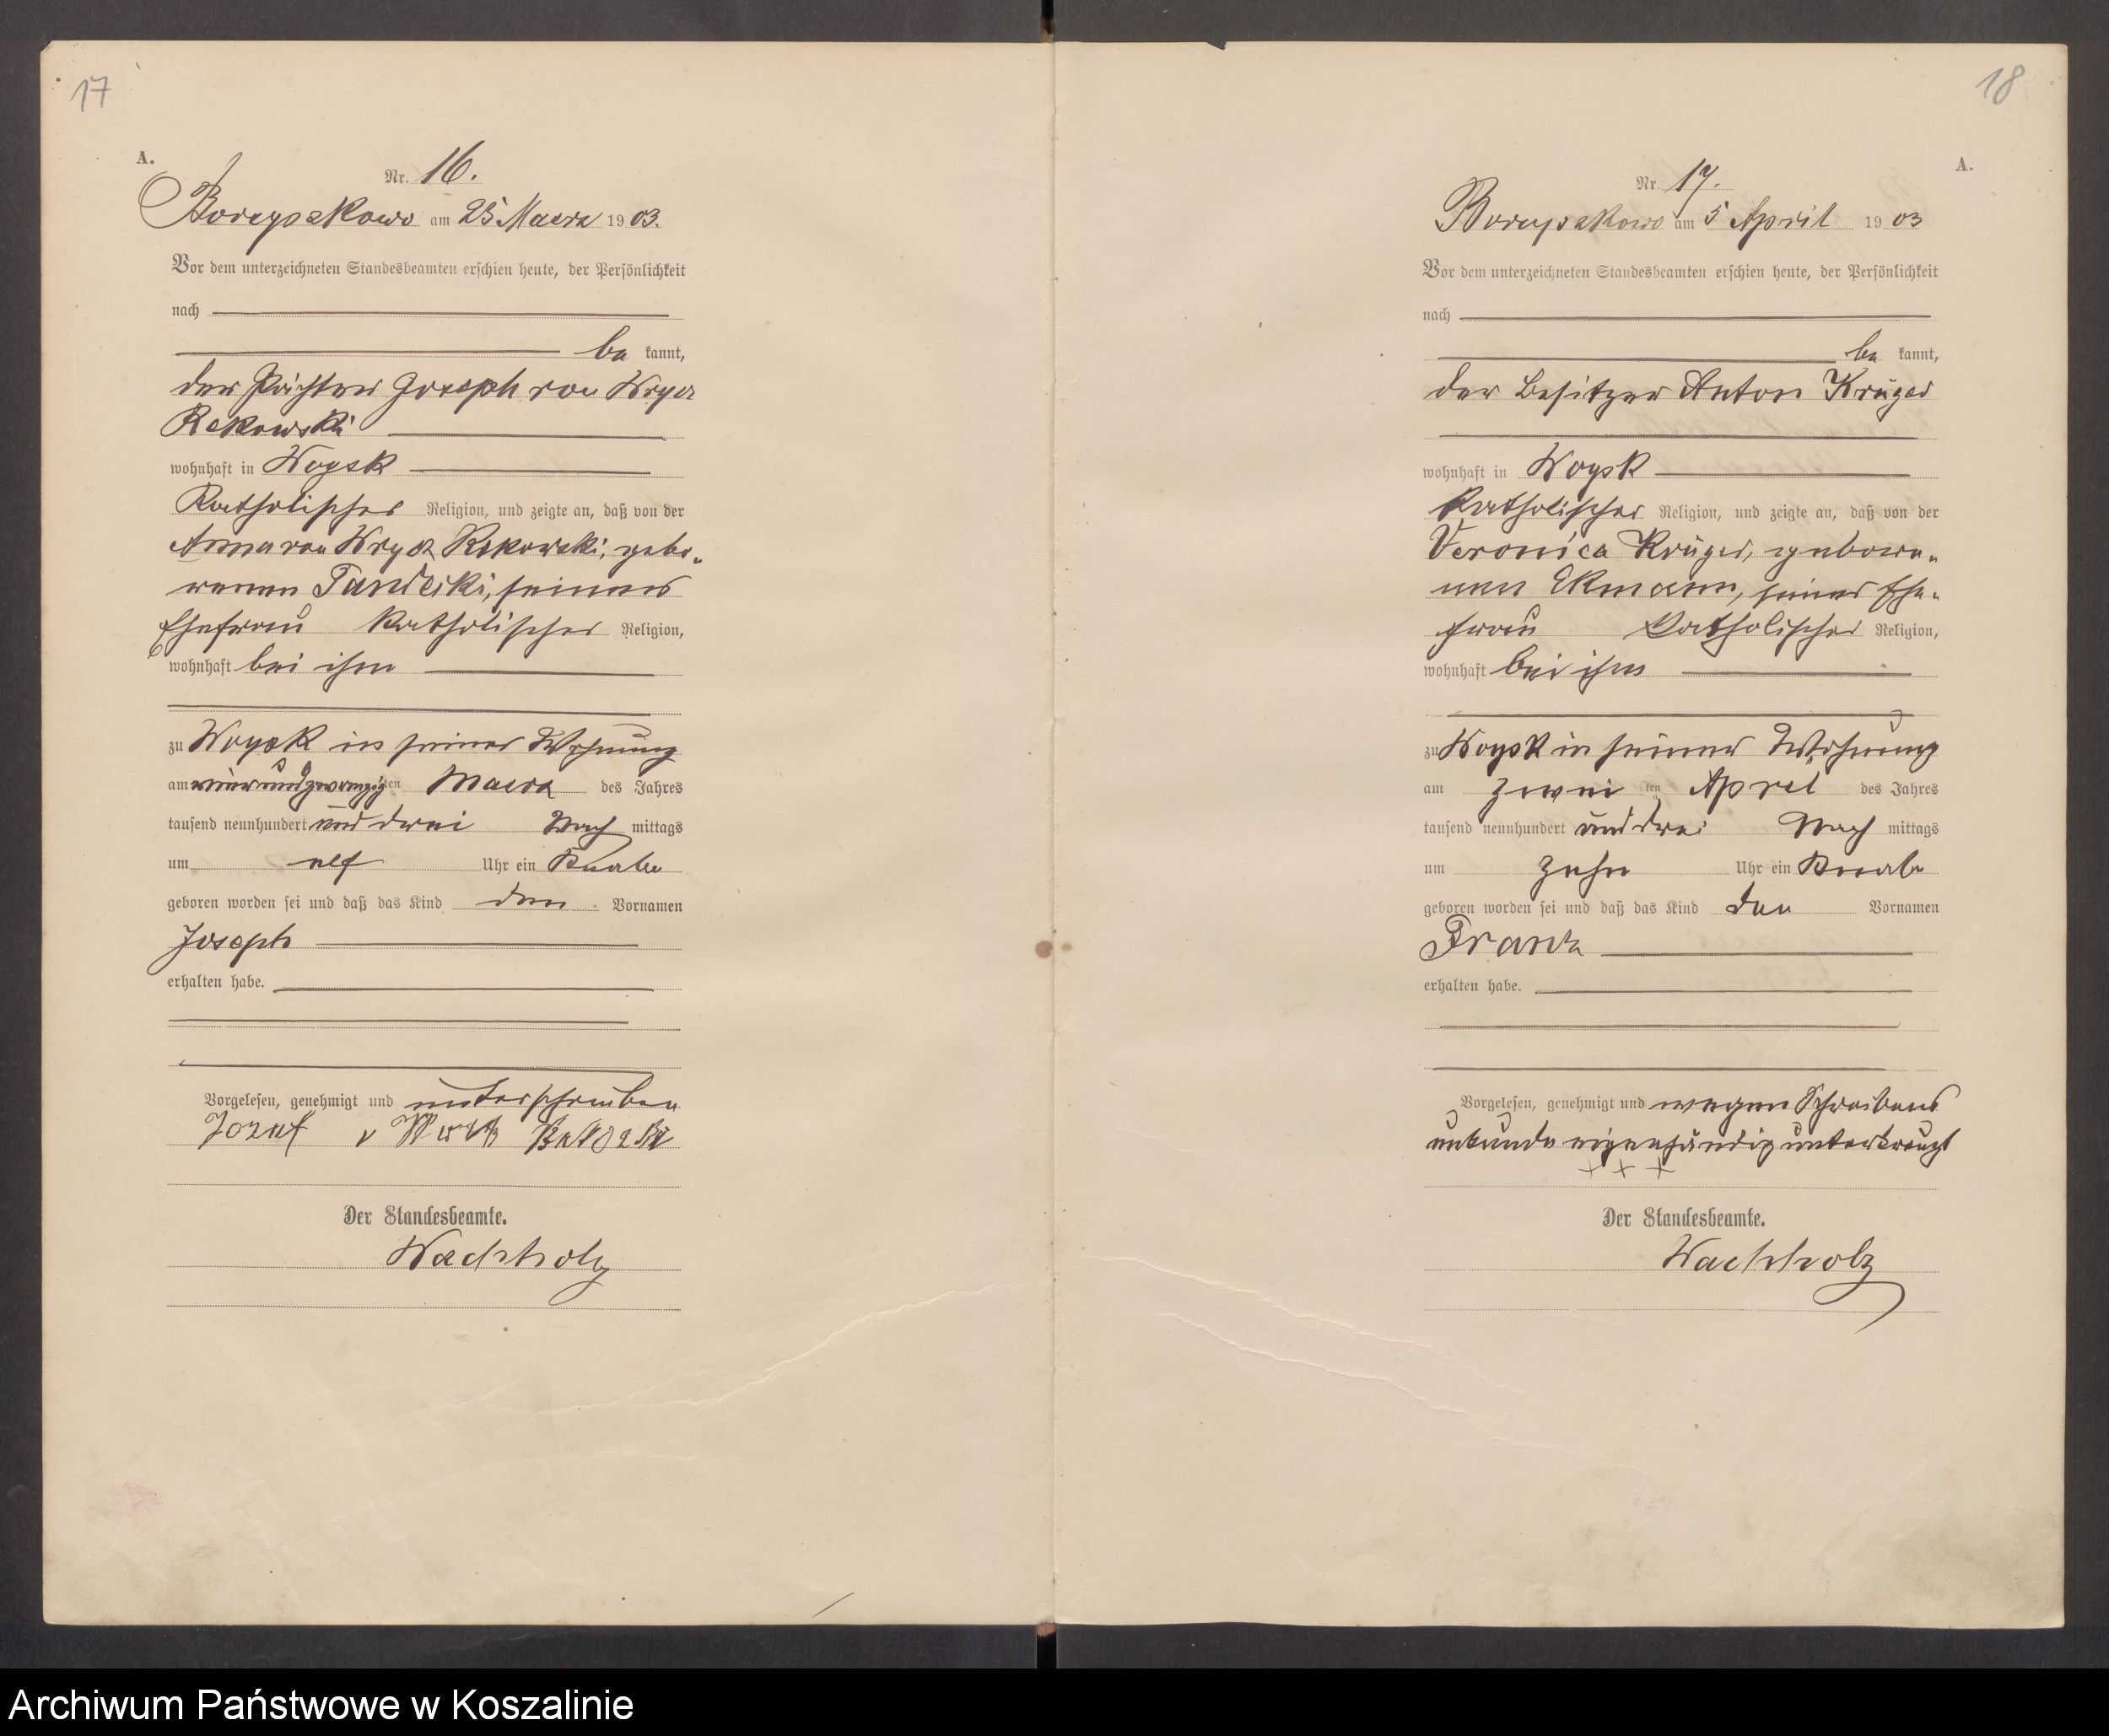 17
A.
Nr. 16.
Borzyskowo am 25 Maerz 1903.
Vor dem unterzeichneten Standesbeamten erschien heute, der Persönlichkeit
nach
be kannt,
der Pächter Joseph von Wrycz
Rekowski
wohnhaft in Woysk
Katholischer Religion, und zeigte an, daß von der
Anna von Wrycz Rekowski, gebo-
renen Pandeski, seiner
Ehefrau Katholischer Religion,
wohnhaft bei ihm
zu Woysk in seiner Wohnung
am vierundzwanzigten Maerz des Jahres
tausend neunhundert und drei Nach mittags
um elf Uhr ein Knabe
geboren worden sei und daß das Kind den Vornamen
Joseph
erhalten habe.
Vorgelesen, genehmigt und unterschrieben
Jozef v
Der Standesbeamte.
Wachholz
18
A.
Nr. 17.
Borzyskowo am 5 April 1903
Vor dem unterzeichneten Standesbeamten erschien heute, der Persönlichkeit
nach
be kannt,
der Besitzer Anton Krüger
wohnhaft in Woysk
Katholischer Religion, und zeigte an, daß von der
Veronica Krüger, gebore-
nen Ekmann, seiner Ehe-
frau Katholischer Religion,
wohnhaft bei ihm
zu Woysk in seiner Wohnung
am zwei ten April des Jahres
tausend neunhundert und drei Nach mittags
um zehn Uhr ein Knabe
geboren worden sei und daß das Kind den Vornamen
Franz
erhalten habe.
Vorgelesen, genehmigt und wegen Schreibens
unkunde eigenhändig unterkreuzt
+ + +
Der Standesbeamte.
Wachholz
Archiwum Państwowe w Koszalinie